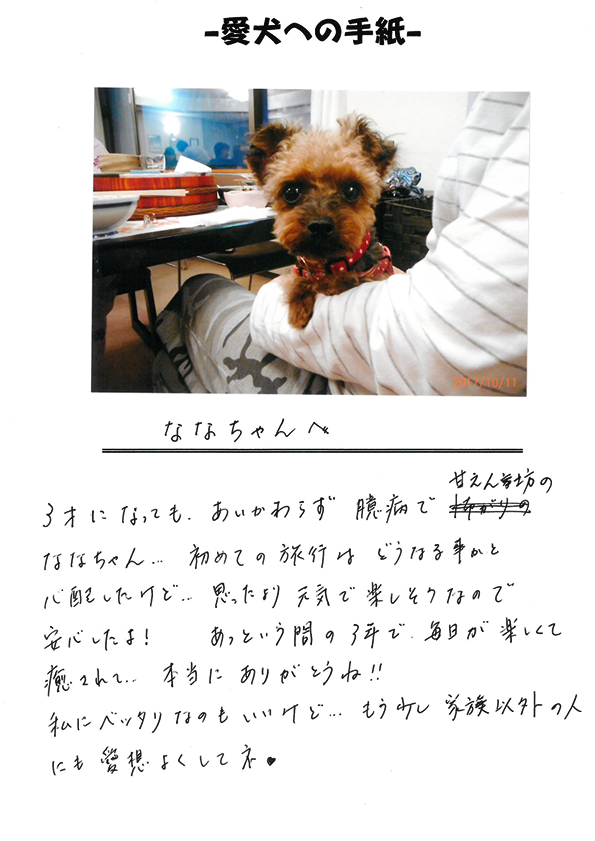 -愛犬への手紙-
2017/10/11
ななちゃんへ
甘えん坊の
3才になっても、あいかわらず 臆病で 怖がりの
ななちゃん… 初めての旅行は どうなる事かと
心配したけど… 思ったより元気で楽しそうなので
安心したよ! あっという間の3年で、毎日が楽しくて
癒されて… 本当にありがとうね!!
私にベッタリなのもいいけど… もう少し 家族以外の人
にも愛想よくしてネ♥